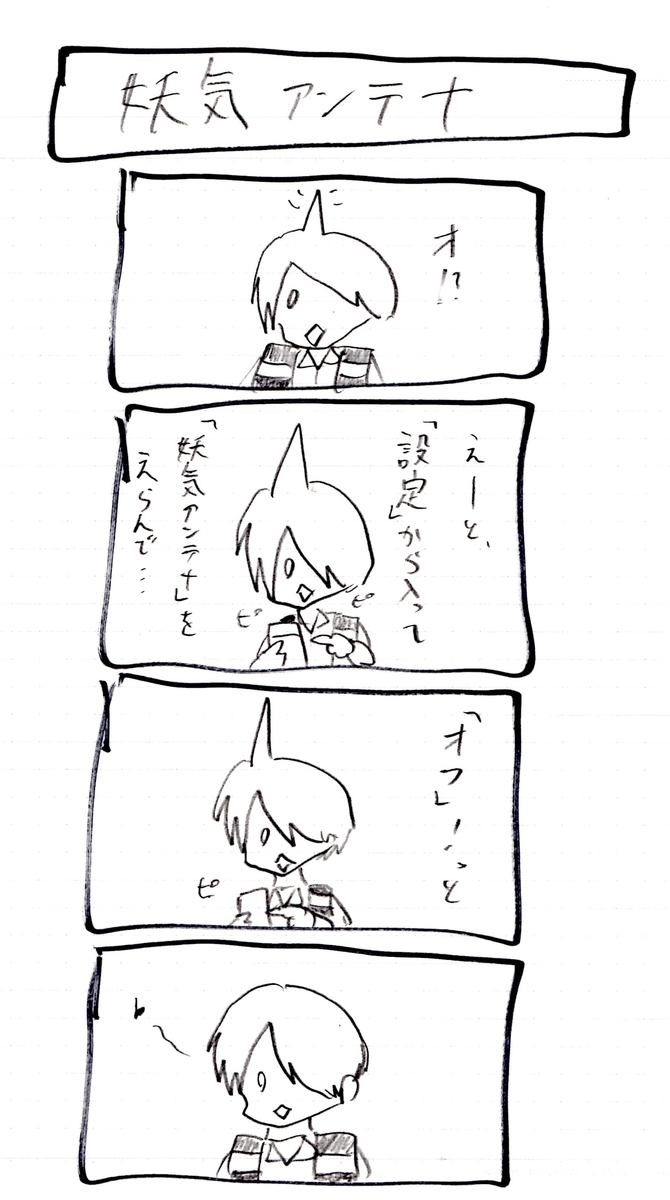 妖気アンテナ
オ!?
えーと、
「設定」から入って
「妖気アンテナ」を
えらんで…
ピ
ピ
「オフ」!っと
ピ